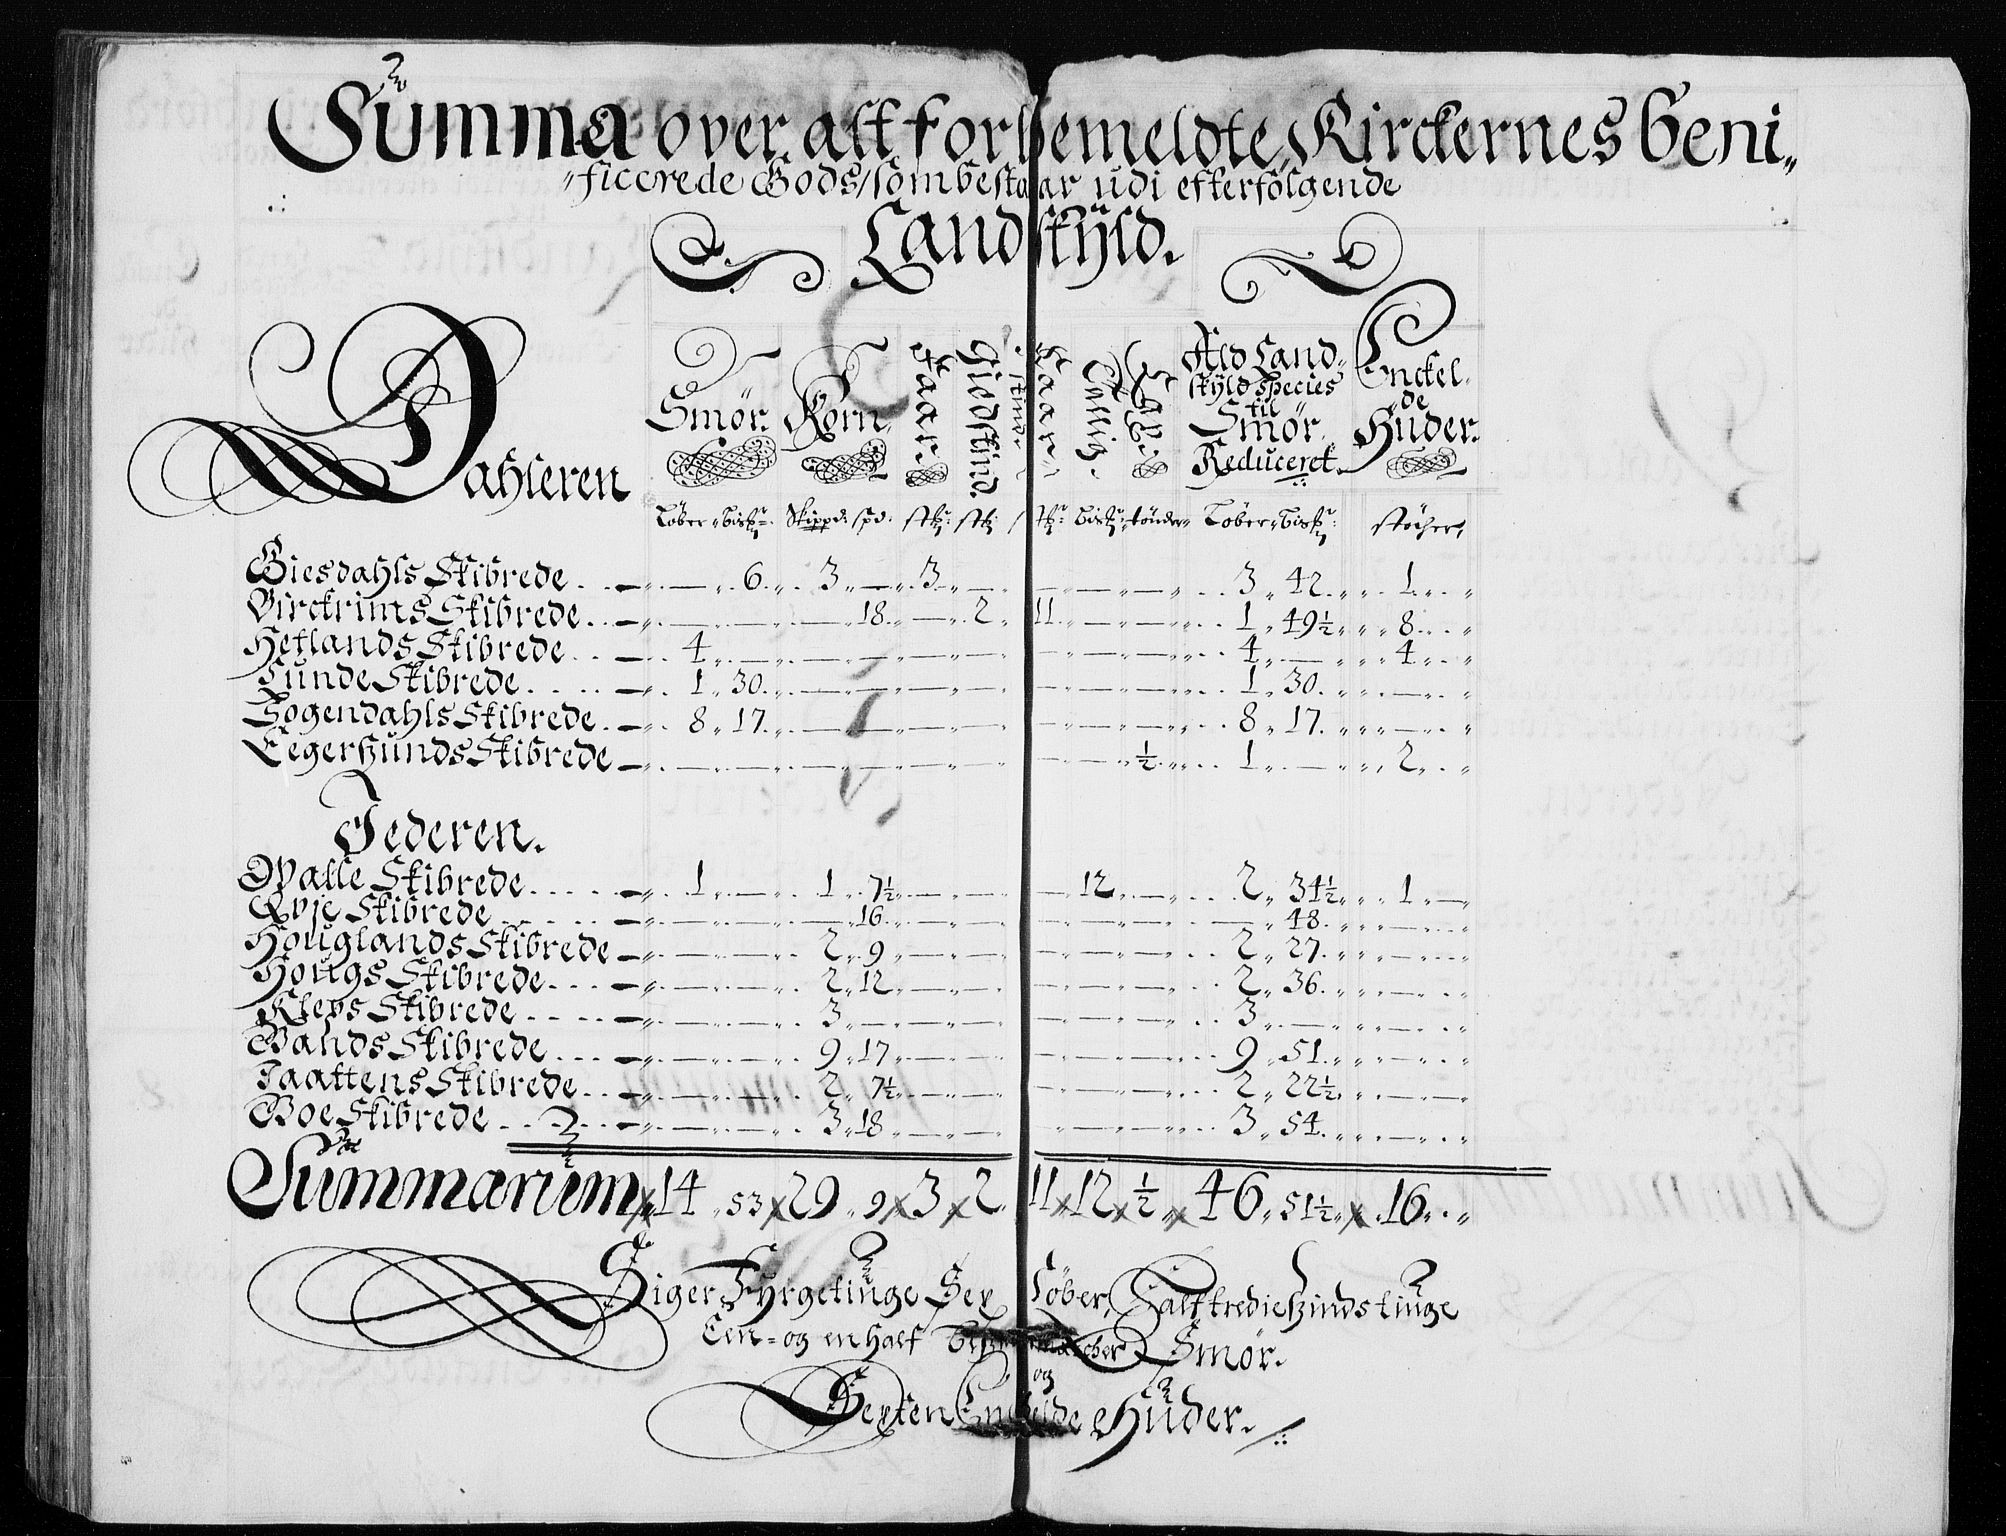 Summa over alt forbemeldte Kirckernes beni„
„ficerede Gods/ som bestaar udi efterfölgende
Landskyld.
Dahleren
Smör. Korn. Faar. Giedskind. Faar„ Calliz. Ald Land„ Enckel„
skyld species de
til Hüder.
Smör
Reduceret.
Löber„ Bispd. Skippd: spd: stk: stk: stk: tönder„ Löber„ stöcher,
Giesdahls Skibrede 6. 3 — 3. — 3 „ 42. 1.
Birckrims Skibrede 18. — 2 11. 1 „ 49½ 8.
Hetlands Skibrede 4 — 4 — 4
Lunde Skibrede 1 „ 30. 1 „ 30. —
Sogendahls Skibrede 8 „ 17. 8 „ 17. —
Eegersunds Skibrede ½ 1 — 2
Jederen.
Qvalle Skibrede 1 — 1 „ 7½ 12 2 „ 34½ 1
Qvie Skibrede 16. 48.
Houglands Skibrede 2 „ 9 2 „ 27.
Hougs Skibrede 2 „ 12 2 „ 36.
Kleps Skibrede 3 — 3 —
Vands Skibrede 9 „ 17 9 „ 51.
Jaattens Skibrede 2 „ 7½ 2 „ 22½
Boe Skibrede 3 „ 18 3 „ 54.
Summarum 14 „ 53 x 29 „ 9 x 3 x 2. 11 x 12 x ½ x 46 „ 51½ x 16
Siger Fyrgetiuge Sex Löber, Halftrediesindstiuge
Een- og en half Smör.
og
Sexten Enckelde Hüder.